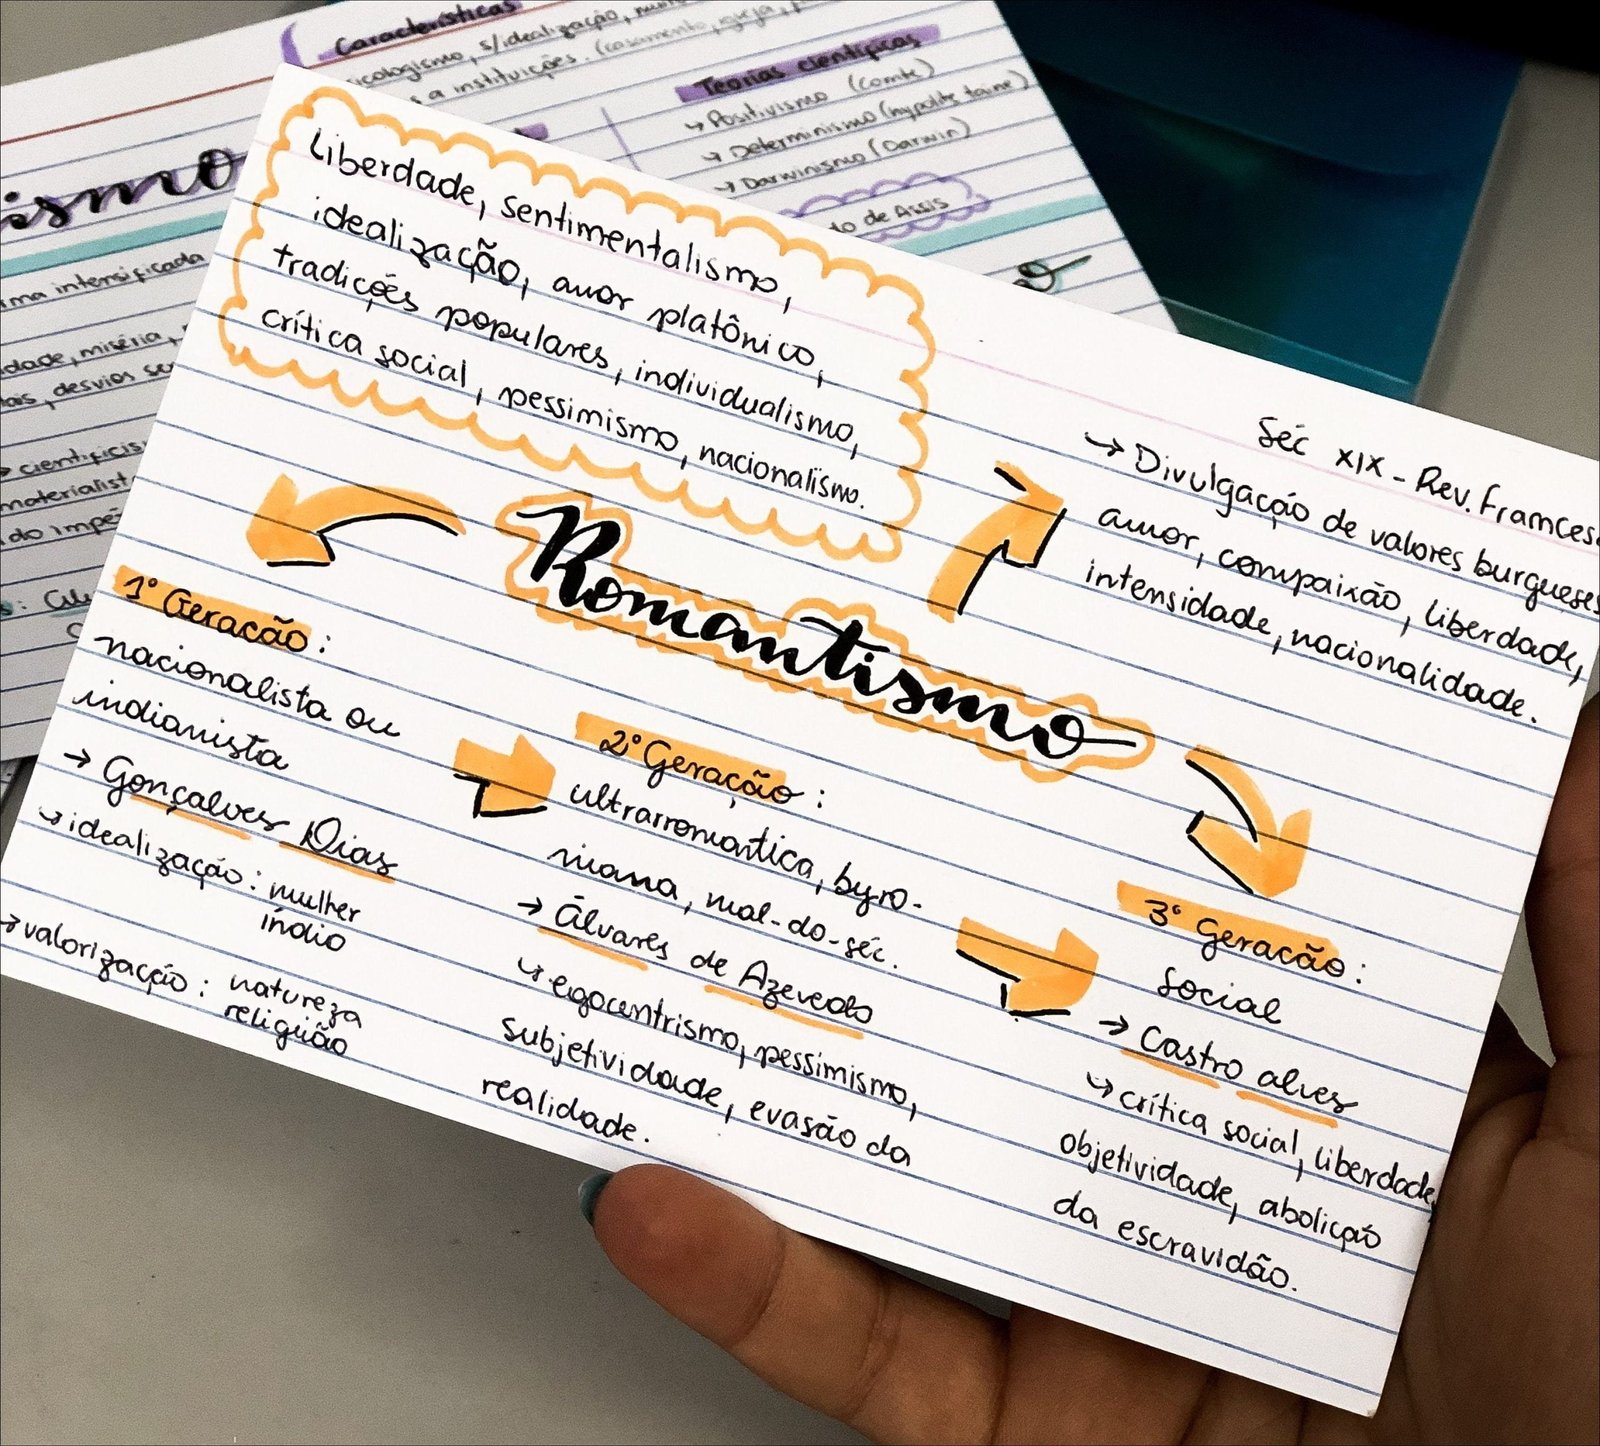 Características
s/idealização,
a instituições. (casamento, igreja,
Teorias científicas
→ Positivismo (comte)
→ Determinismo (hypolite taine)
→ Darwinismo (Darwin)
de Assis
ismo
intensificada
miséria,
desvios
materialist
liberdade, sentimentalismo,
idealização, amor platônico,
tradições populares, individualismo,
crítica social, pessimismo, nacionalismo.
Romantismo
Séc XIX - Rev. Frances
→ Divulgação de valores burgueses
amor, compaixão, liberdade,
intensidade, nacionalidade.
1° Geração:
nacionalista ou
indianista
→ Gonçalves Dias
→ idealização: mulher
índio
→ valorização: natureza
religião
2° Geração:
ultrarromântica, byro-
niana, mal-do-séc.
→ Álvares de Azevedo
→ egocentrismo, pessimismo,
subjetividade, evasão da
realidade.
3° Geração:
social
→ Castro alves
→ crítica social, liberdade,
objetividade, abolição
da escravidão.